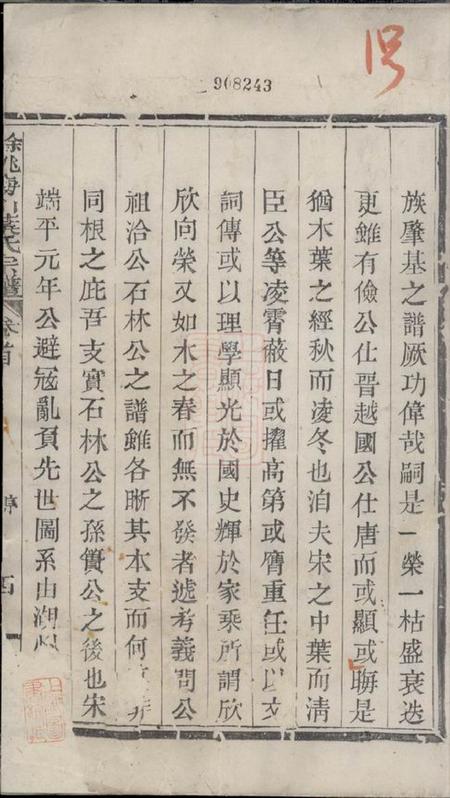 908243
19
族肇基之譜厥功偉哉嗣是一榮一枯盛衰迭
更雖有儉公仕晋越國公仕唐而或顯或晦是
猶木葉之經秋而凌冬也洎夫宋之中葉而淸
臣公等凌霄蔽日或擢高第或膺重任或以文
詞傳或以理學顯光於國史輝於家乘所謂欣
欣向榮又如木之春而無不發者遞考義問公
祖洽公石林公之譜雖各晰其本支而何非
同根之庇吾支實石林公之孫簣公之後也宋
端平元年公避寇亂負先世圖系由湖州
餘姚葉氏宗譜
卷首
序